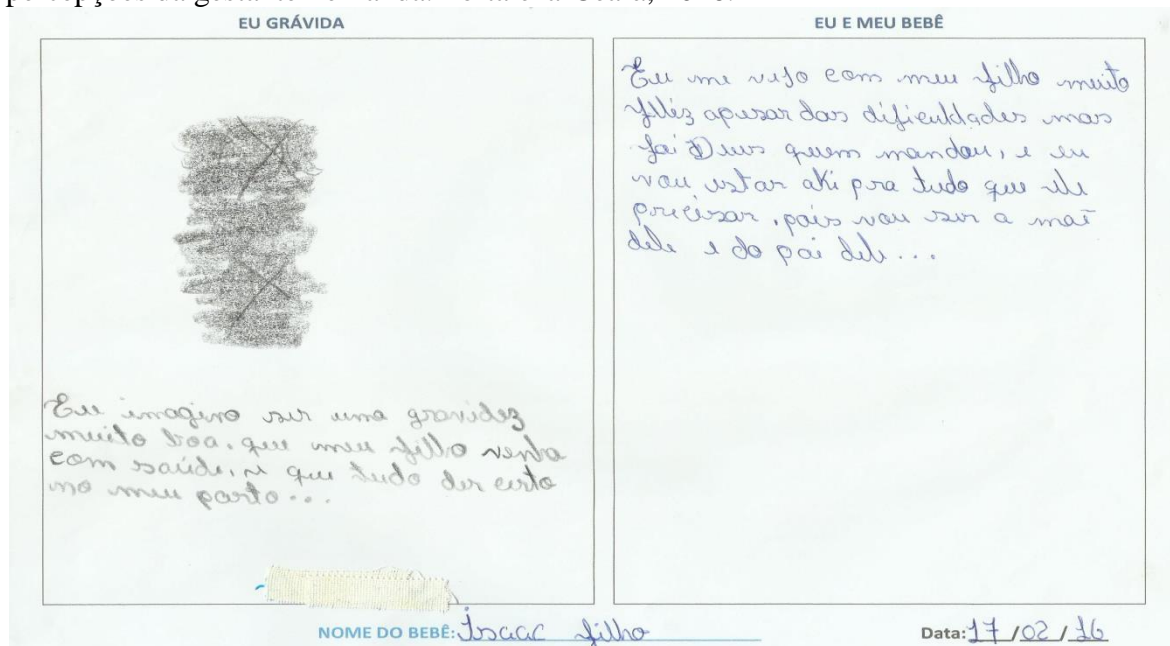 EU GRÁVIDA
Eu imagino ser uma gravidez
muito boa, que meu filho venha
com saúde, e que tudo der certo
no meu parto...
EU E MEU BEBÊ
Eu me vejo com meu filho muito
filiz apesar das dificuldades mas
foi Deus quem mandou, e eu
vou estar aki pra tudo que ele
precisar, pois vou ser a maĩ
dele e do pai dele...
NOME DO BEBÊ: Isaac filho
Data: 17/02/16